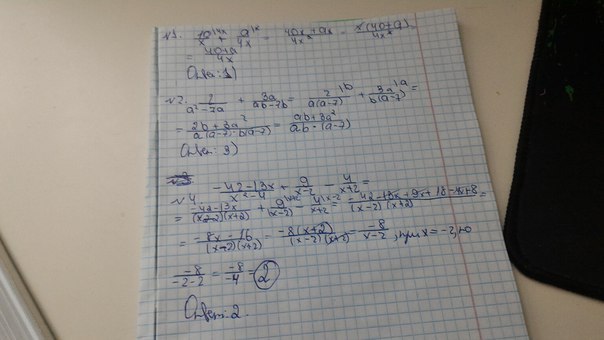 №1. 10/x^(4x + a/4x^(x = 40x+ax/4x² = x(40+a)/4x² =
= 40+a/4x
Ответ: 1)
№2. 2/a²-7a + 3a/ab-7b = 2/a(a-7)^(b + 3a/b(a-7)^(a =
= 2b+3a²/a(a-7)·b(a-7) = ab+3a²/ab-(a-7)
Ответ: 3)
№4 -42-13x/x²-4 + 9/x-2 - 4/x+2 =
= -42-13x/(x-2)(x+2) + 9/(x-2) - 4/x+2 = -42-13x+9x+18-4x+8/(x-2)(x+2) =
= -8x-16/(x-2)(x+2) = -8(x+2)/(x-2)(x+2) = -8/x-2, при x=-2, то
-8/-2-2 = -8/-4 = 2
Ответ: 2.